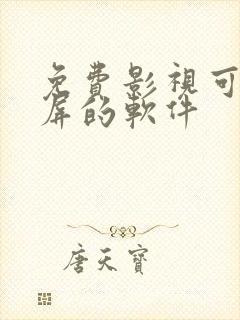 免費影視可
屏的軟件
唐天寶